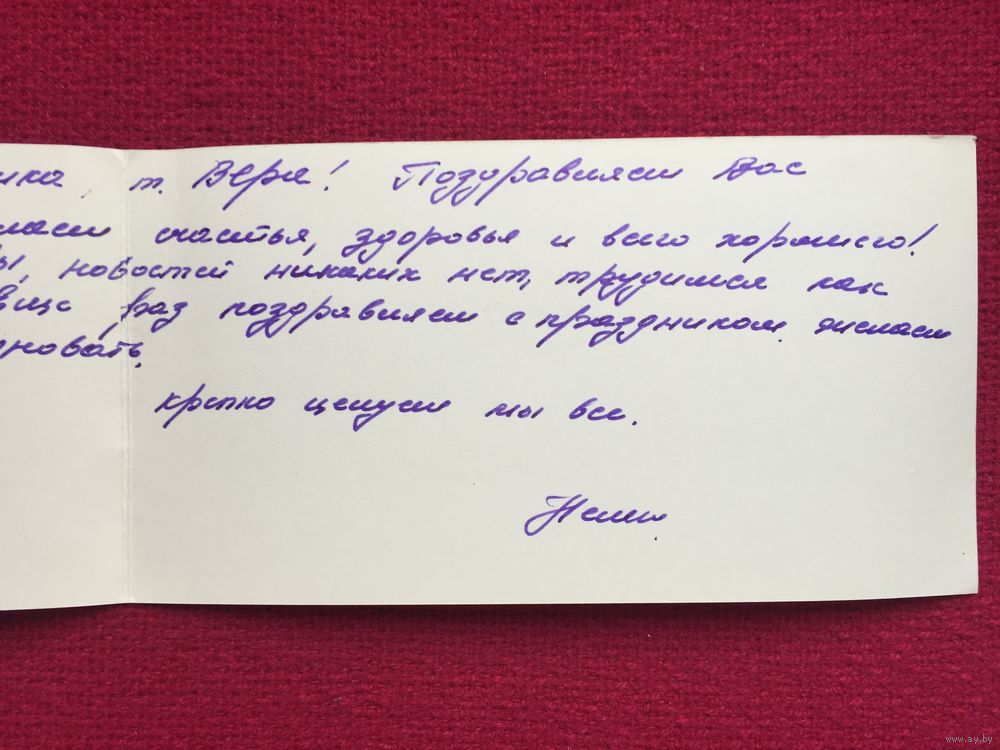 ика, т. Вера! Поздравляем Вас
лаем счастья, здоровья и всего хорошего!
ы, новостей никаких нет, трудимся как
еще раз поздравляем с праздником. желаем
новать.
крепко целуем мы все.
Нелли.
www.ay.by